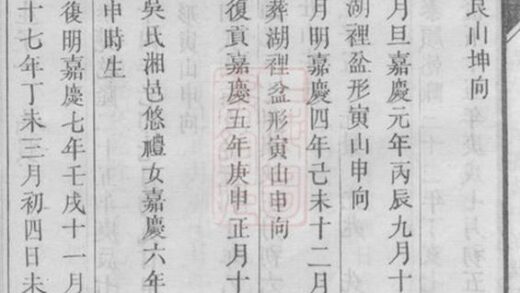 艮山坤向
月旦嘉慶元年丙辰九月十
湖裡盆形寅山申向
月明嘉慶四年己未十二月
葬湖裡盆形寅山申向
復貢嘉慶五年庚申正月十
吳氏湘邑悠禮女嘉慶六年
申時生
復明嘉慶七年壬戌十一月
十七年丁未三月初四日未